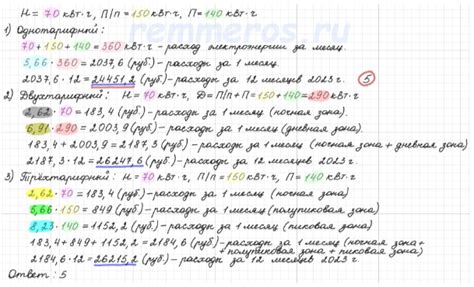 remmeros.ru
Н = 70 кВт·ч, П/п = 150 кВт·ч, П = 140 кВт·ч
1) Однотарифный:
70 + 150 + 140 = 360 кВт·ч - расход электроэнергии за месяц.
5,66 · 360 = 2037,6 (руб.) - расходы за 1 месяц.
2037,6 · 12 = 24451,2 (руб.) - расходы за 12 месяцев 2023 г. 5
2) Двухтарифный: Н = 70 кВт·ч, Д = П/п + П = 150 + 140 = 290 кВт·ч
2,62 · 70 = 183,4 (руб.) - расходы за 1 месяц (ночная зона).
6,91 · 290 = 2003,9 (руб.) - расходы за 1 месяц (дневная зона).
183,4 + 2003,9 = 2187,3 (руб.) - расходы за 1 месяц (ночная зона + дневная зона)
2187,3 · 12 = 26247,6 (руб.) - расходы за 12 месяцев 2023 г.
3) Трёхтарифный: Н = 70 кВт·ч, П/П = 150 кВт·ч, П = 140 кВт·ч
2,62 · 70 = 183,4 (руб.) - расходы за 1 месяц (ночная зона)
5,66 · 150 = 849 (руб.) - расходы за 1 месяц (полупиковая зона)
8,23 · 140 = 1152,2 (руб.) - расходы за 1 месяц (пиковая зона)
183,4 + 849 + 1152,2 = 2184,6 (руб.) - расходы за 1 месяц (ночная зона +
+ полупиковая зона + пиковая зона)
2184,6 · 12 = 26215,2 (руб.) - расходы за 12 месяцев 2023 г.
Ответ: 5